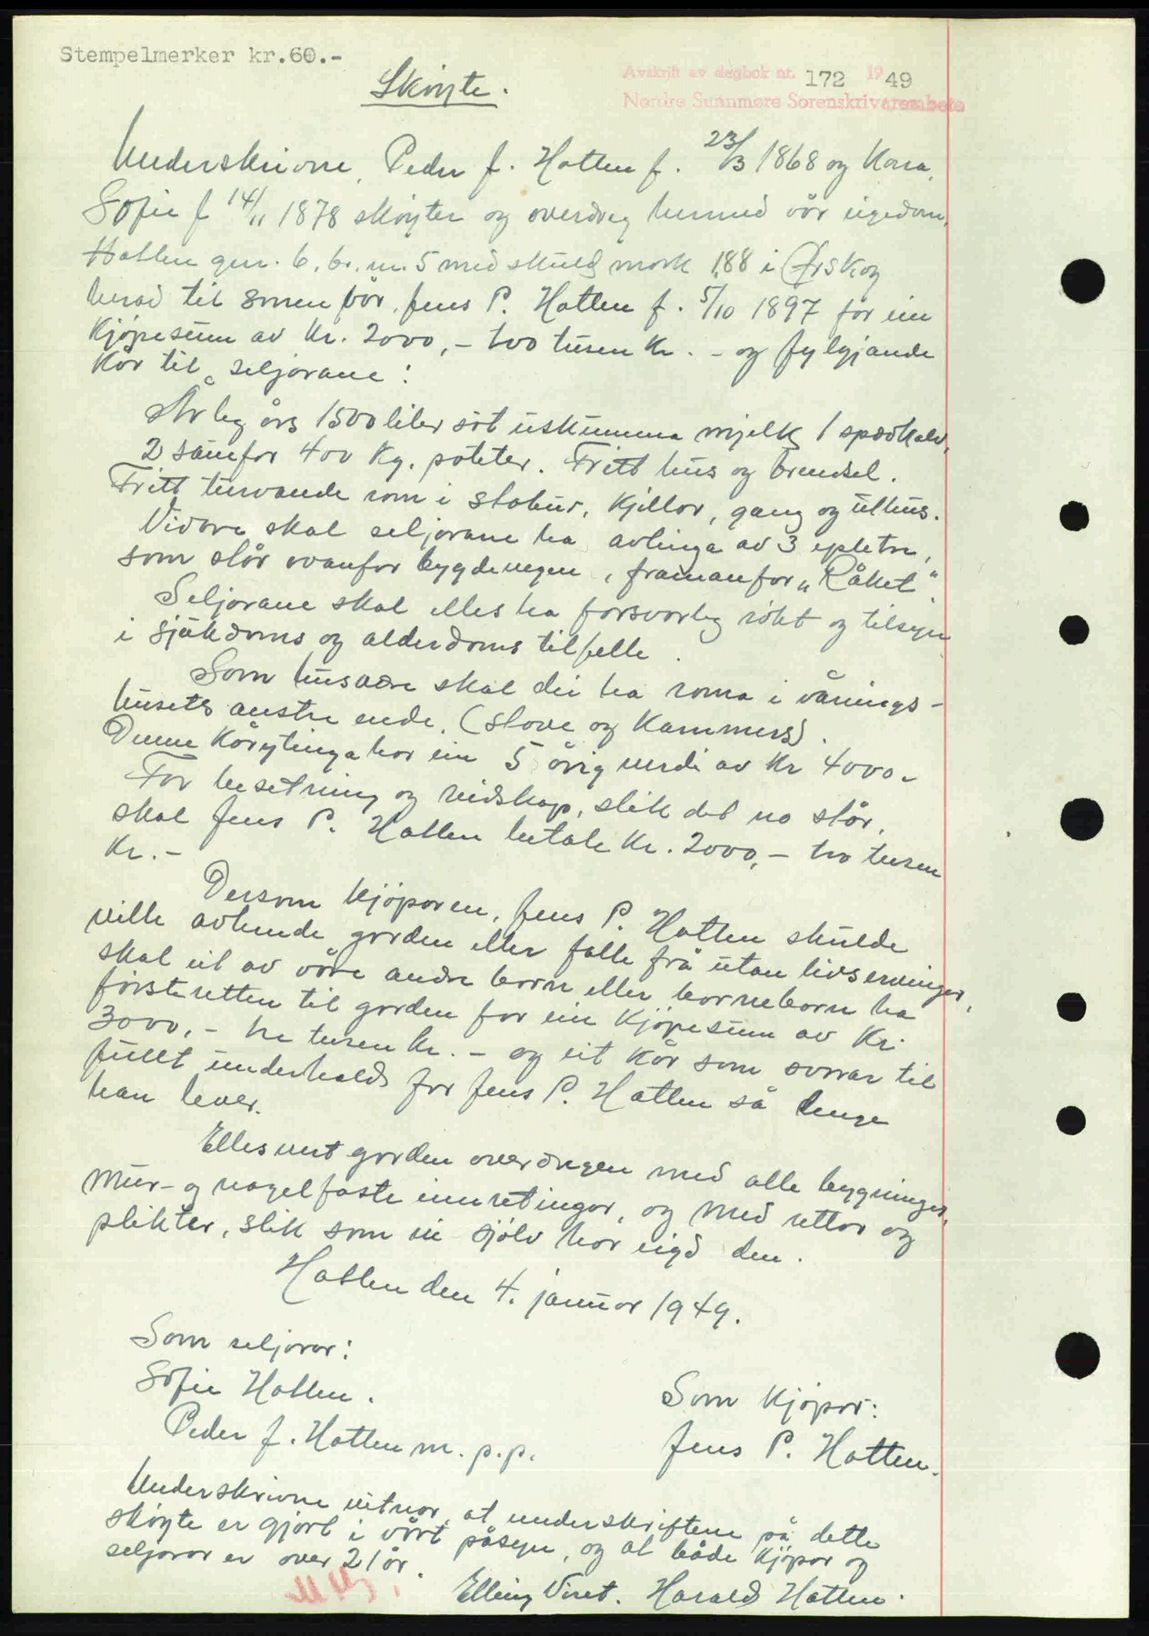 Stempelmerker kr.60.-
Avskrift av dagbok nr. 172 1949
Nordre Sunnmøre Sorenskrivarembete
Skøyte.
Underskrivne, Peder J. Hatlen f. 23/3 1868 og Kona,
Sofie f 14/11 1878 skøyter og overdreg hermed vår eigedom,
Hatlen gnr. 6, br.nr. 5 med skuld mork 1,88 i Ørskog
herad til sonen vår, Jens P. Hatlen f. 5/10 1897 for ein
kjøpesum av kr. 2000,- two tusen kr. - og fylgjande
kår til seljarane:
Årleg års 1500 liter søt uskumma mjelk, 1 spædkalv,
2 sauefor 400 kg. poteter. Fritt hus og brendsel.
Fritt turvande rom i stabur, kjellar, gang og uthus.
Vidare skal seljarane ha avlinga av 3 epletre,
som står ovanfor bygdevegen, framanfor „Råket“.
Seljarane skal elles ha forsvarleg røkt og tilsyn
i sjukdoms og alderdoms tilfelle.
Som husvære skal dei ha roma i vånings-
husets austre ende, (stove og kammers).
Denne kårytinga har ein 5 årig verdi av kr 4000.-
For besetning og reidskap, slik det no står,
skal Jens P. Hatlen betale kr. 2000,- two tusen
kr.-
Dersom kjøparen, Jens P. Hatlen skulde
ville avhende garden eller falle frå utan livsarvingar,
skal eit av våre andre born eller borneborn ha
førsteretten til garden for ein kjøpesum av kr.
3000,- tre tusen kr. - og eit kår som svarar til
fullt underhald for Jens P. Hatlen så lenge
han lever.
Elles vert garden overdregen med alle bygningar,
mur- og nagelfaste innretingar, og med rettar og
plikter, slik som vi sjølv har eigd den.
Hatlen den 4. januar 1949.
Som seljarar:
Sofie Hatlen.
Som kjøpar:
Peder J. Hatlen m. p.p.
Jens P. Hatlen.
Underskrivne vitnar, at underskriftene på dette
skøyte er gjort i vårt påsyn, og at både kjøpar og
seljarar er over 21 år.
Elling Viset. Harald Hatlen.